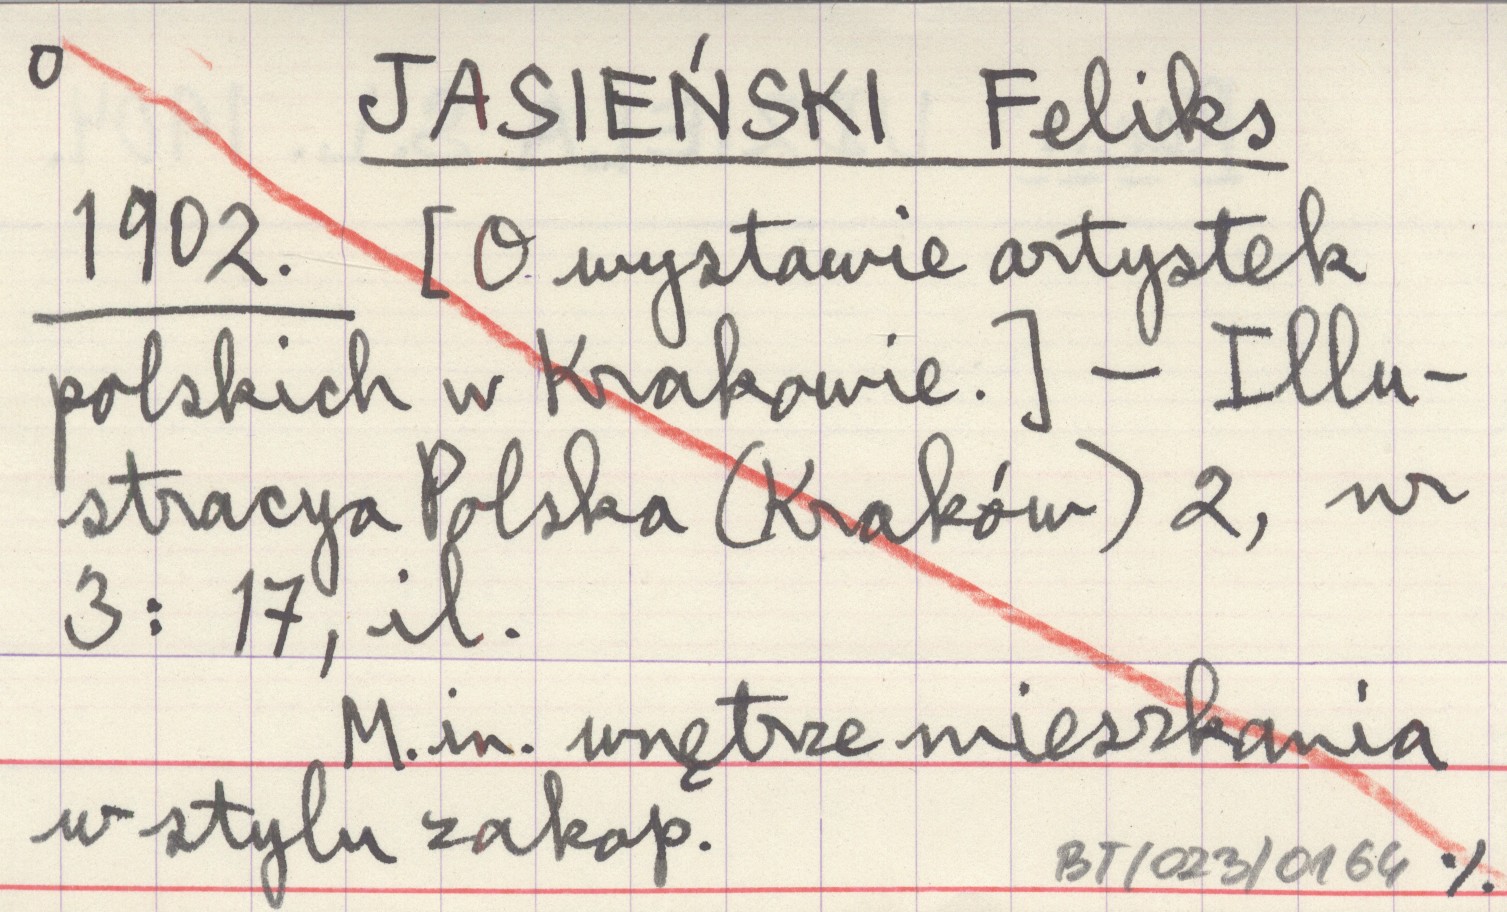 0
JASIEŃSKI Feliks
1902. [O wystawie artystek
polskich w Krakowie.] – Illu-
stracya Polska (Kraków) 2, nr
3: 17, il.
M.in. wnętrze mieszkania
w stylu zakop.
BT/023/0164 ./.